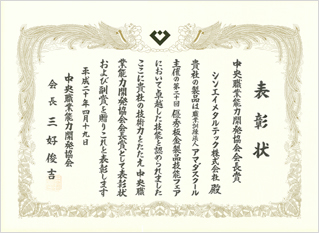 表彰状
中央職業能力開発協会会長賞
シンエイメタルテック株式会社 殿
貴社の製品は職業訓練法人アマダスクール
主催の第二十回優秀板金製品技能フェア
において卓越した技能と認められました
ここに貴社の技術力をたたえ中央職
業能力開発協会会長賞として表彰状
および副賞を贈りこれを表彰します
平成二十年四月十九日
中央職業能力開発協会
会長 三好俊吉